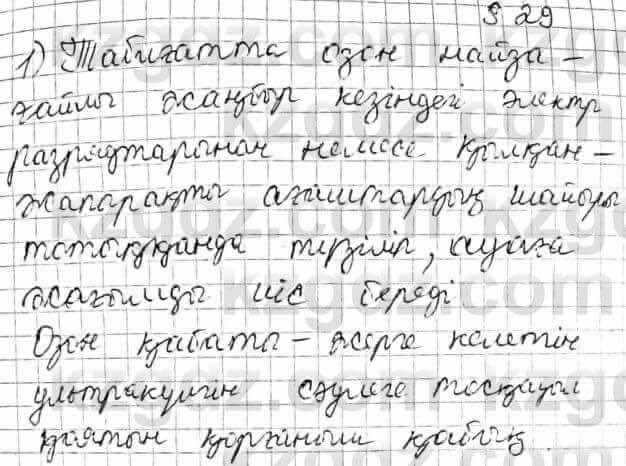 § 29
1) Табиғатта озон найза-
ғайлы жаңбыр кезіндегі электр
разрядтарынан немесе қылқан-
жапырақты ағаштардың шайыры
тотыққанда түзіліп, ауаға
жағымды иіс береді
Озон қабаты - жерге келетін
ультракүлгін сәулеге тосқауыл
қоятын қорғаныш қабық
kzgdz.com